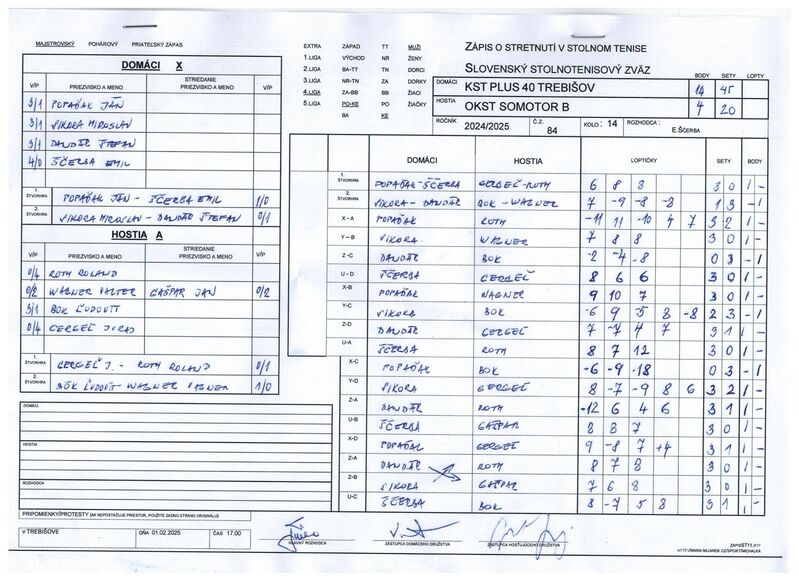 MAJSTROVSKÝ POHÁROVÝ PRIATEĽSKÝ ZÁPAS
DOMÁCI X
V/P PRIEZVISKO A MENO STRIEDANIE PRIEZVISKO A MENO V/P
3/1 POPAĎAK JÁN
3/1 SIKORA MIROSLAV
3/1 DANDÁR ŠTEFAN
4/0 ŠČERBA EMIL
1. ŠTVORHRA POPAĎAK JÁN - ŠČERBA EMIL 1/0
2. ŠTVORHRA SIKORA MIROSLAV - DANDÁR ŠTEFAN 0/1
HOSTIA A
V/P PRIEZVISKO A MENO STRIEDANIE PRIEZVISKO A MENO V/P
0/4 ROTH ROLAND
0/2 WAGNER VALTER GAŠPAR JAN 0/2
3/1 BOK ĽUDOVÍT
0/4 GERGEĽ JURAJ
1. ŠTVORHRA GERGEĽ J. - ROTH ROLAND 0/1
2. ŠTVORHRA BOK ĽUDOVÍT - WAGNER 1/0
DOMÁCI
HOSTIA
ROZHODCA
PRIPOMIENKY/PROTESTY (AK NEPOSTAČUJE PRIESTOR, POUŽITE ZADNÚ STRANU ORIGINÁLU)
V TREBIŠOVE DŇA 01.02.2025 ČAS 17.00
EXTRA ZÁPAD TT MUŽI
1.LIGA VÝCHOD NR ŽENY
2.LIGA BA-TT TN DORCI
3.LIGA NR-TN ZA DORKY
4.LIGA ZA-BB BB ŽIACI
5.LIGA PO-KE PO ŽIAČKY
BA KE
ZÁPIS O STRETNUTÍ V STOLNOM TENISE
SLOVENSKÝ STOLNOTENISOVÝ ZVÄZ
BODY SETY LOPTY
DOMÁCI KST PLUS 40 TREBIŠOV 14 45
HOSTIA OKST SOMOTOR B 4 20
ROČNÍK 2024/2025 Č.Z. 84 KOLO : 14 ROZHODCA : E.ŠČERBA
DOMÁCI HOSTIA LOPTIČKY SETY BODY
1. ŠTVORHRA POPAĎAK-ŠČERBA GERGEĽ-ROTH 6 8 3 3 0 1 -
2. ŠTVORHRA SIKORA - DANDÁR BOK - WAGNER 7 -9 -8 -8 1 3 - 1
X - A POPAĎAK ROTH -11 11 -10 4 7 3 2 1 -
Y - B SIKORA WAGNER 7 8 8 3 0 1 -
Z - C DANDÁR BOK -2 -4 -8 0 3 - 1
U - D ŠČERBA GERGEĽ 8 6 6 3 0 1 -
X-B POPAĎAK WAGNER 9 10 7 3 0 1 -
Y-C SIKORA BOK -6 9 5 8 -8 2 3 - 1
Z-D DANDÁR GERGEĽ 7 -7 4 7 3 1 1 -
U-A ŠČERBA ROTH 8 7 12 3 0 1 -
X-C POPAĎAK BOK -6 -9 -18 0 3 - 1
Y-D SIKORA GERGEĽ 8 -7 -9 8 6 3 2 1 -
Z-A DANDÁR ROTH -12 6 4 6 3 1 1 -
U-B ŠČERBA GAŠPAR 8 3 7 3 0 1 -
X-D POPAĎAK GERGEĽ 9 -8 7 +4 3 1 1 -
Z-A DANDÁR ROTH 8 7 8 3 0 1 -
Z-B SIKORA GAŠPAR 7 6 8 3 0 1 -
U-C ŠČERBA BOK 8 -7 5 8 3 1 1 -
HLAVNÝ ROZHODCA ZÁSTUPCA DOMÁCEHO DRUŽSTVA ZÁSTUPCA HOSŤUJÚCEHO DRUŽSTVA
ZAPISST11.XTP
HTTP://WWW.MUJWEB.CZ/SPORT/MICHALKA